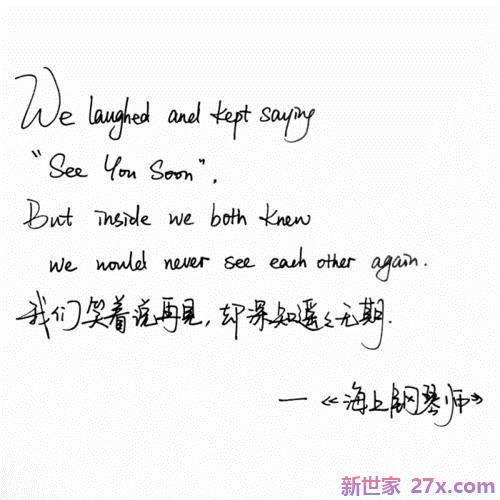 We laughed and kept saying
"See You Soon",
But inside we both knew
we would never see each other again.
我们笑着说再见,却深知遥遥无期.
—《海上钢琴师》
新世家 27x.com